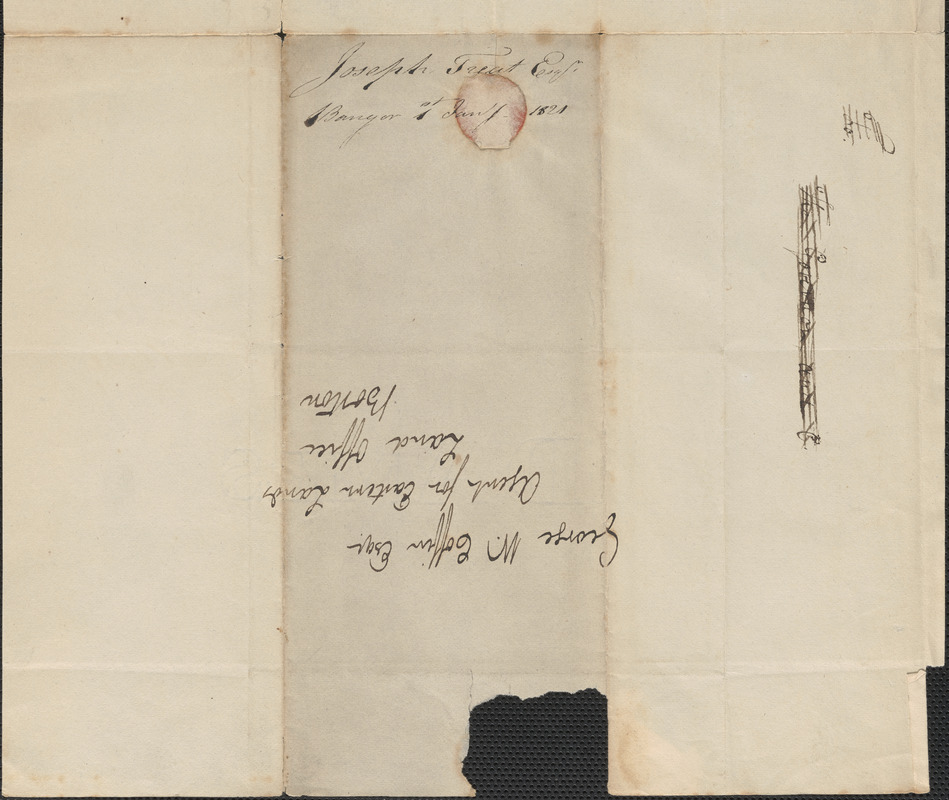 Joseph Treat Esqr.
Bangor 1st Jany. 1821
George W. Coffin Esqr.
Agent for Eastern Lands
Land Office
Boston